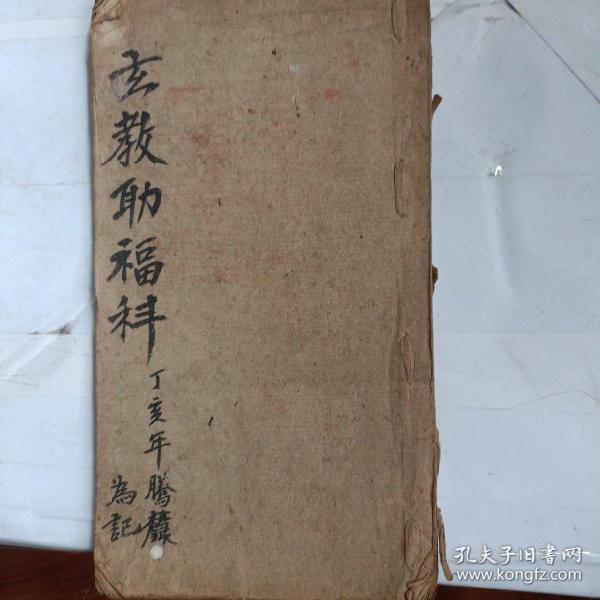 玄教助福科
丁亥年騰
為記
孔夫子旧书网
www.kongfz.com